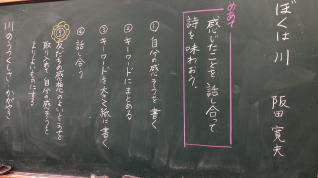 ぼくは川 阪田 寛夫
めあて
感じたことを話し合って
詩を味わおう。
① 自分の感そうを書く
② キーワードにまとめる
③ キーワードを大きく紙に書く
④ 話し合う
⑤ 友だちの感想のよいところを
取り入れて自分の感そうを
よりよいものにする
川のうつくしさ かがやき